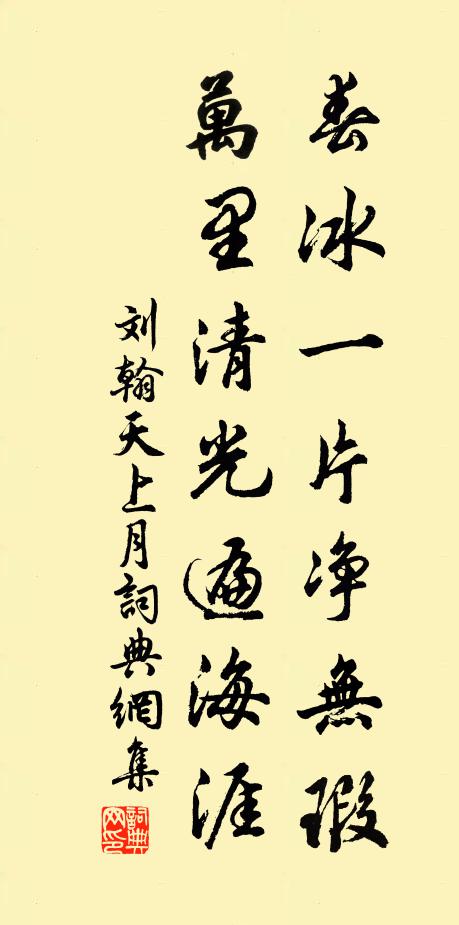 春冰一片净無瑕
萬里清光遍海涯
刘翰天上月詞典網集
詞典网印